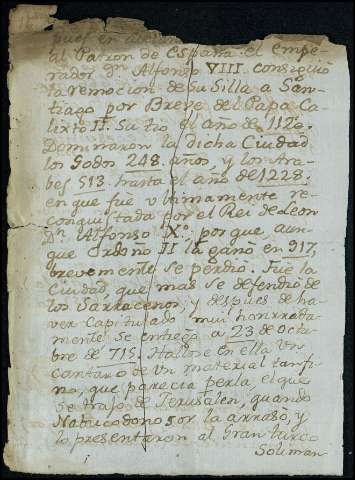 al Patron de España: el empe-
rador Dn. Alfonso VIII. consiguiò
la remocion de su Silla a San-
tiago por Breve del Papa Ca-
lixto II. su tio el año de 1120.
Dominaron la dicha Ciudad
los Godos 248. años, y los Ara-
bes 513. hasta el año de 1228.
en que fue ultimamente re-
conquistada por el Rei de Leon
Dn. Alfonso IXº, por que aun-
que Ordoño II la ganò en 917,
brevemente se perdiò. Fue la
Ciudad, que mas se defendiò de
los Sarracenos; y despues de ha-
ver capitulado mui honrrada
mente se entregò a 23 de Octu-
bre de 715. Hallose en ella un
cantaro de un material tan fi-
no, que parecia perla, el que
se trajo de Jerusalen, quando
Nabucodonosor la arrasò, y
lo presentaron al Gran turco
Soliman